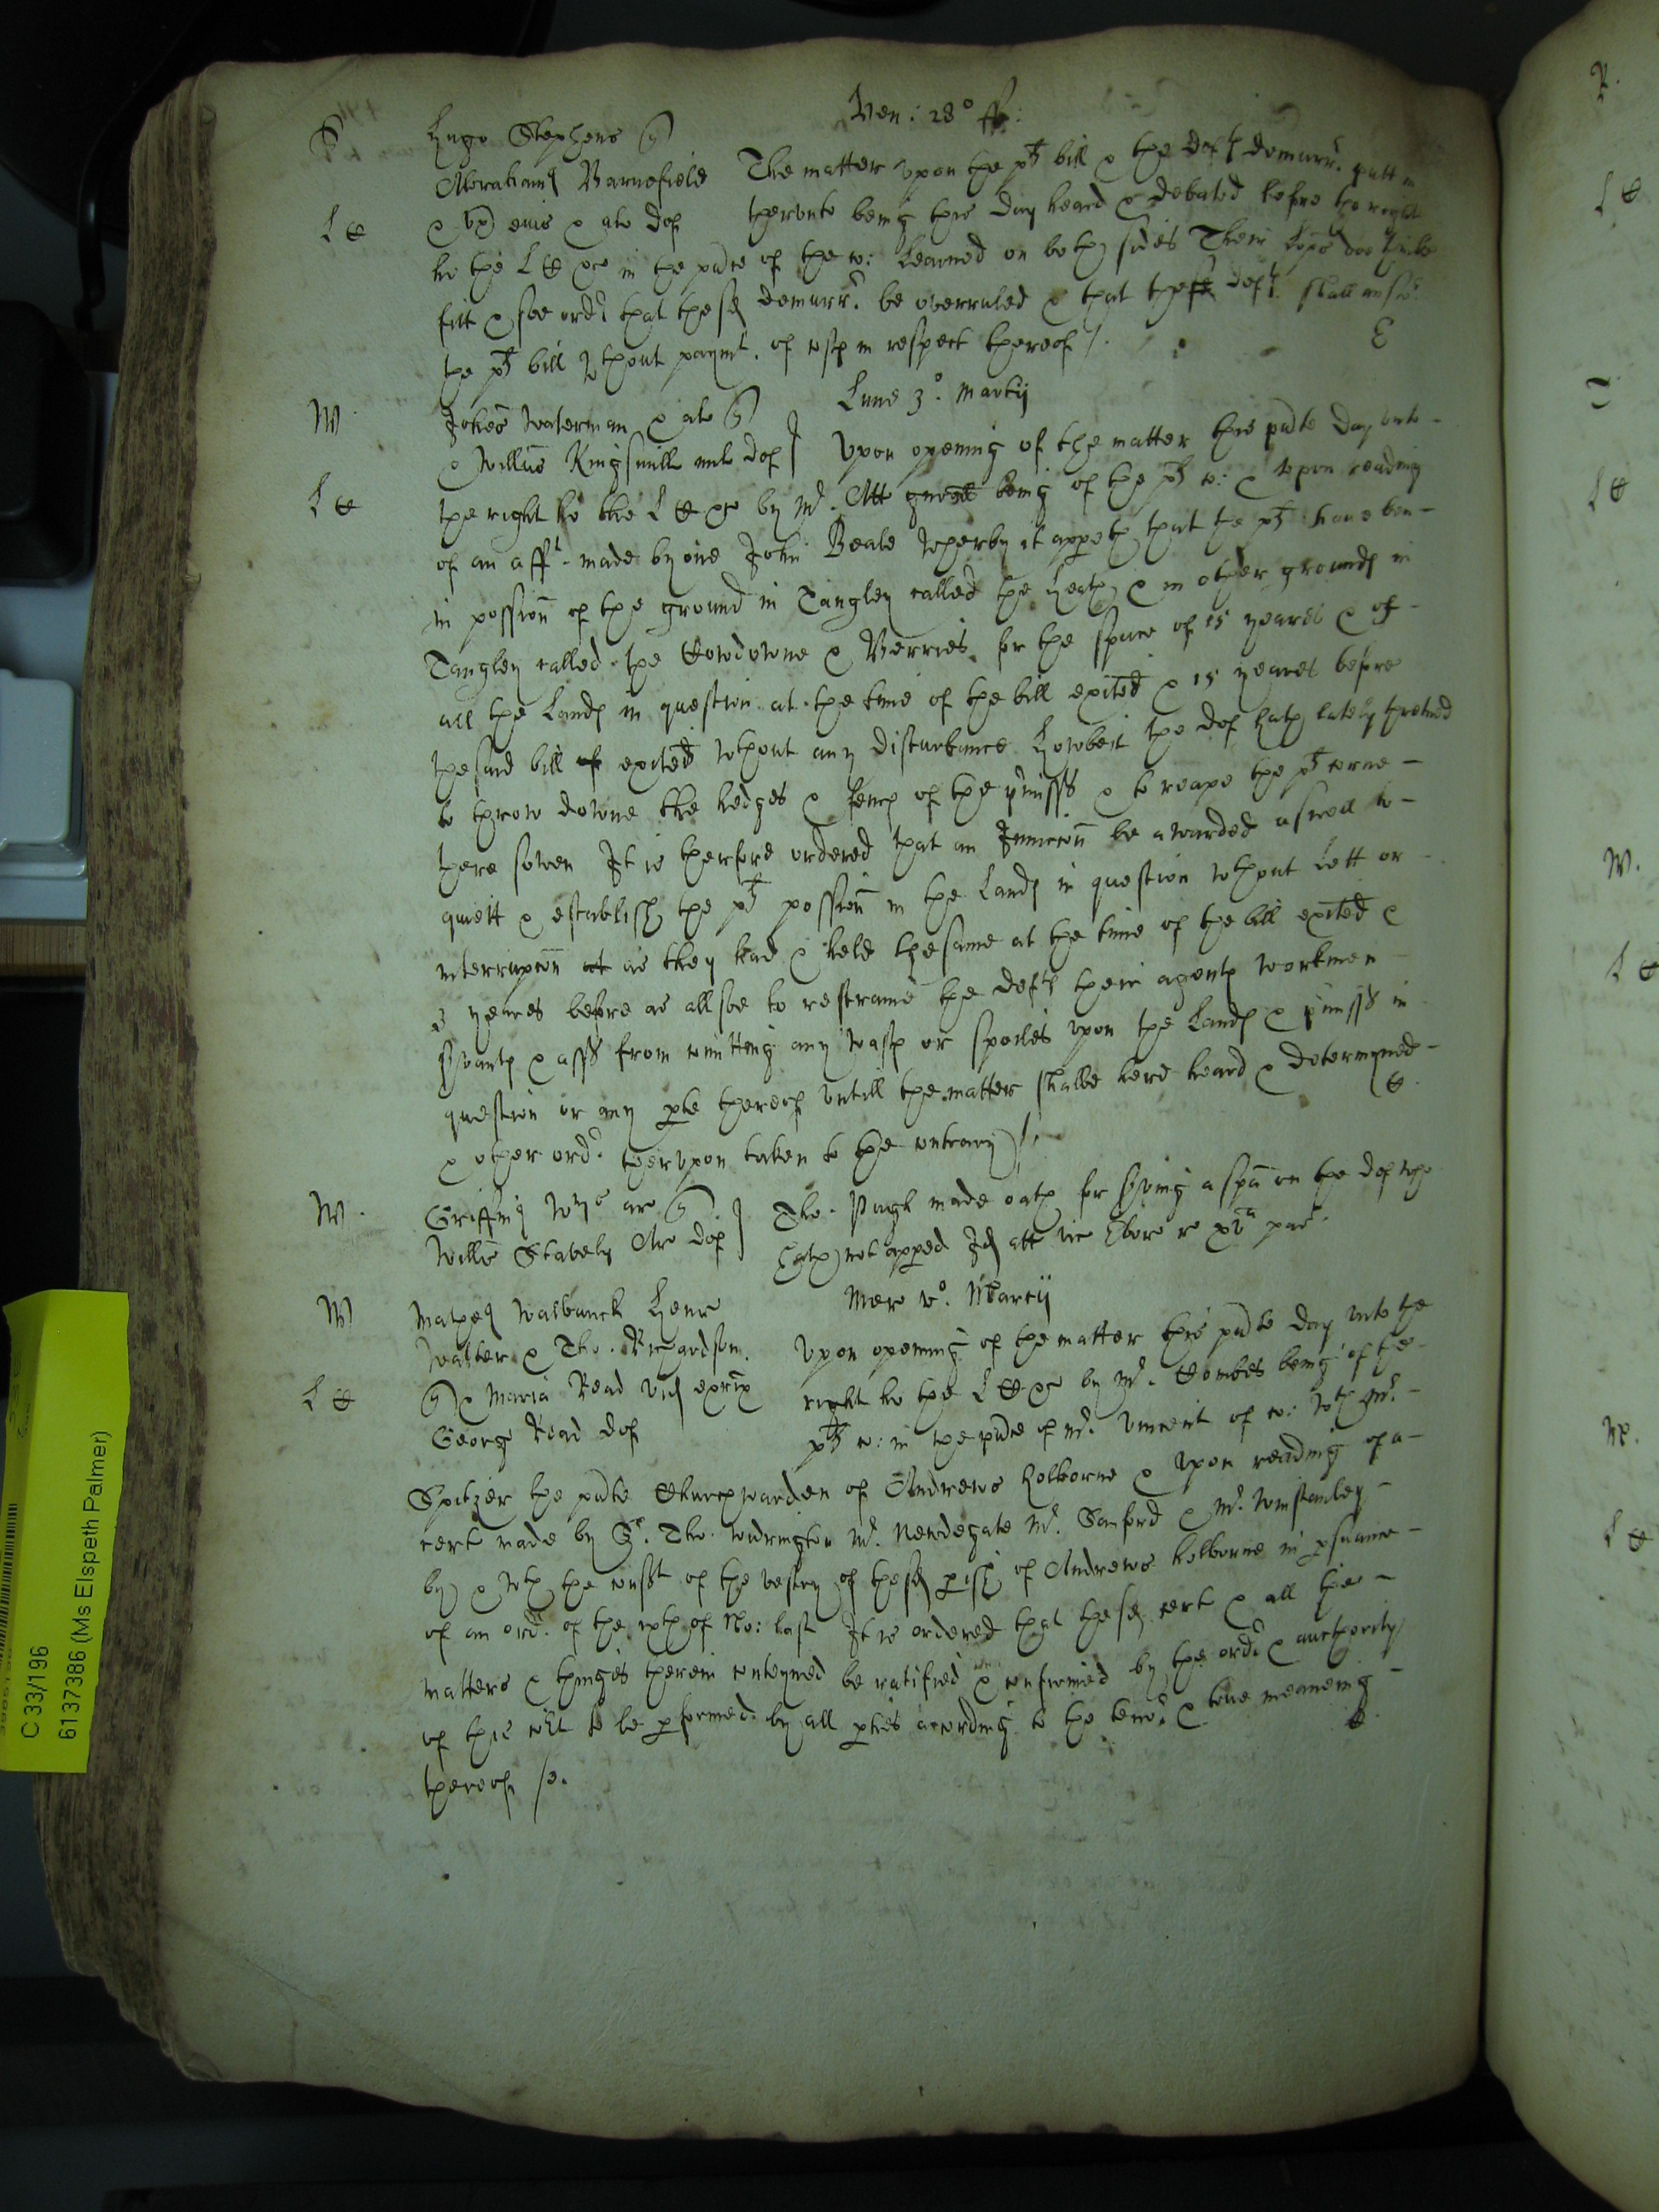 Ven: 28° ff:
S Hugo Stephens q
Abrahamus Barnefield The matter upon the plts bill & the defts demurr. putt in
L C & ux eius & als def therunto being this day heard & debated before the right
ho the L C &c in the pnce of the co: learned on both sides Their lopps doe thinke
fitt & soe ordr that the sd demurr. be overruled & that the defts shall answ.
the plts bill wthout paymt. of costs in respect thereof /.
E
Lune 3°. Martij
W Johes Waterman & als q
& Willus Kingsmill mil def Upon opening of the matter this pnte day unto
L C the right ho the L C &c by Mr. Att gnrall being of the plts co: & upon reading
of an afft. made by one John Beale wherby it appeth that the plts have ben
in possion of the ground in Tangley called the heath & in other grounds in
Tangley called the Cowdowne & Berries for the space of 15 yeares & of
all the lands in question at the time of the bill exited & 15 yeares before
the said bill exited wthout any disturbance howbeit the def hath lately thretned
to throw downe the hedges & fences of the pmisss & to reape the plts corne
there sowen It is therfore ordered that an Iniuccon be awarded aswell to
quiett & establish the plts possion in the lands in question wthout lett or
interrupcon as they had & held the same at the time of the bill exited &
3 yeares before as allsoe to restraine the defts their agents workmen
srvants & asss from comitting any wasts or spoiles upon the lands & pmisss in
question or any pte thereof untill the matter shalbe here heard & determyned
& other ordr. therupon taken to the contrary /.
C
W. Griffin ar q
Willus Stavely Ar def Tho. Pugh made oath for srving a spa on the def who
hath not apped Id att vic
Mer v°. Martij
W Matheus Walbanck Henr
Walter & Tho. Richardson Upon opening of the matter this pnte day unto the
L C q & Maria Read vid exrix right ho the L C &c by Mr. Combes being of the
Georg Read def plts co: in the pnce of Mr. Vincent of co: wth Mr.
Spitzer the pnte Churchwarden of Andrewes holborne & upon reading of a
cert made by Sr. Tho. Widrington Mr. Newdegate Mr. Sanford & Mr. Winstanley
by & wth the consst of the vestry of the sd pish of Andrewes holborne in psuance
of an ordr. of the xth of No: last It is ordered that the sd cert & all the
matters & things therein conteyned be ratified & confirmed by the ordr & aucthority
of this cort to be pformed by all pties according to the tenr. & true meaneing
thereof /.
C
C 33/196
6137386 (Ms Elspeth Palmer)